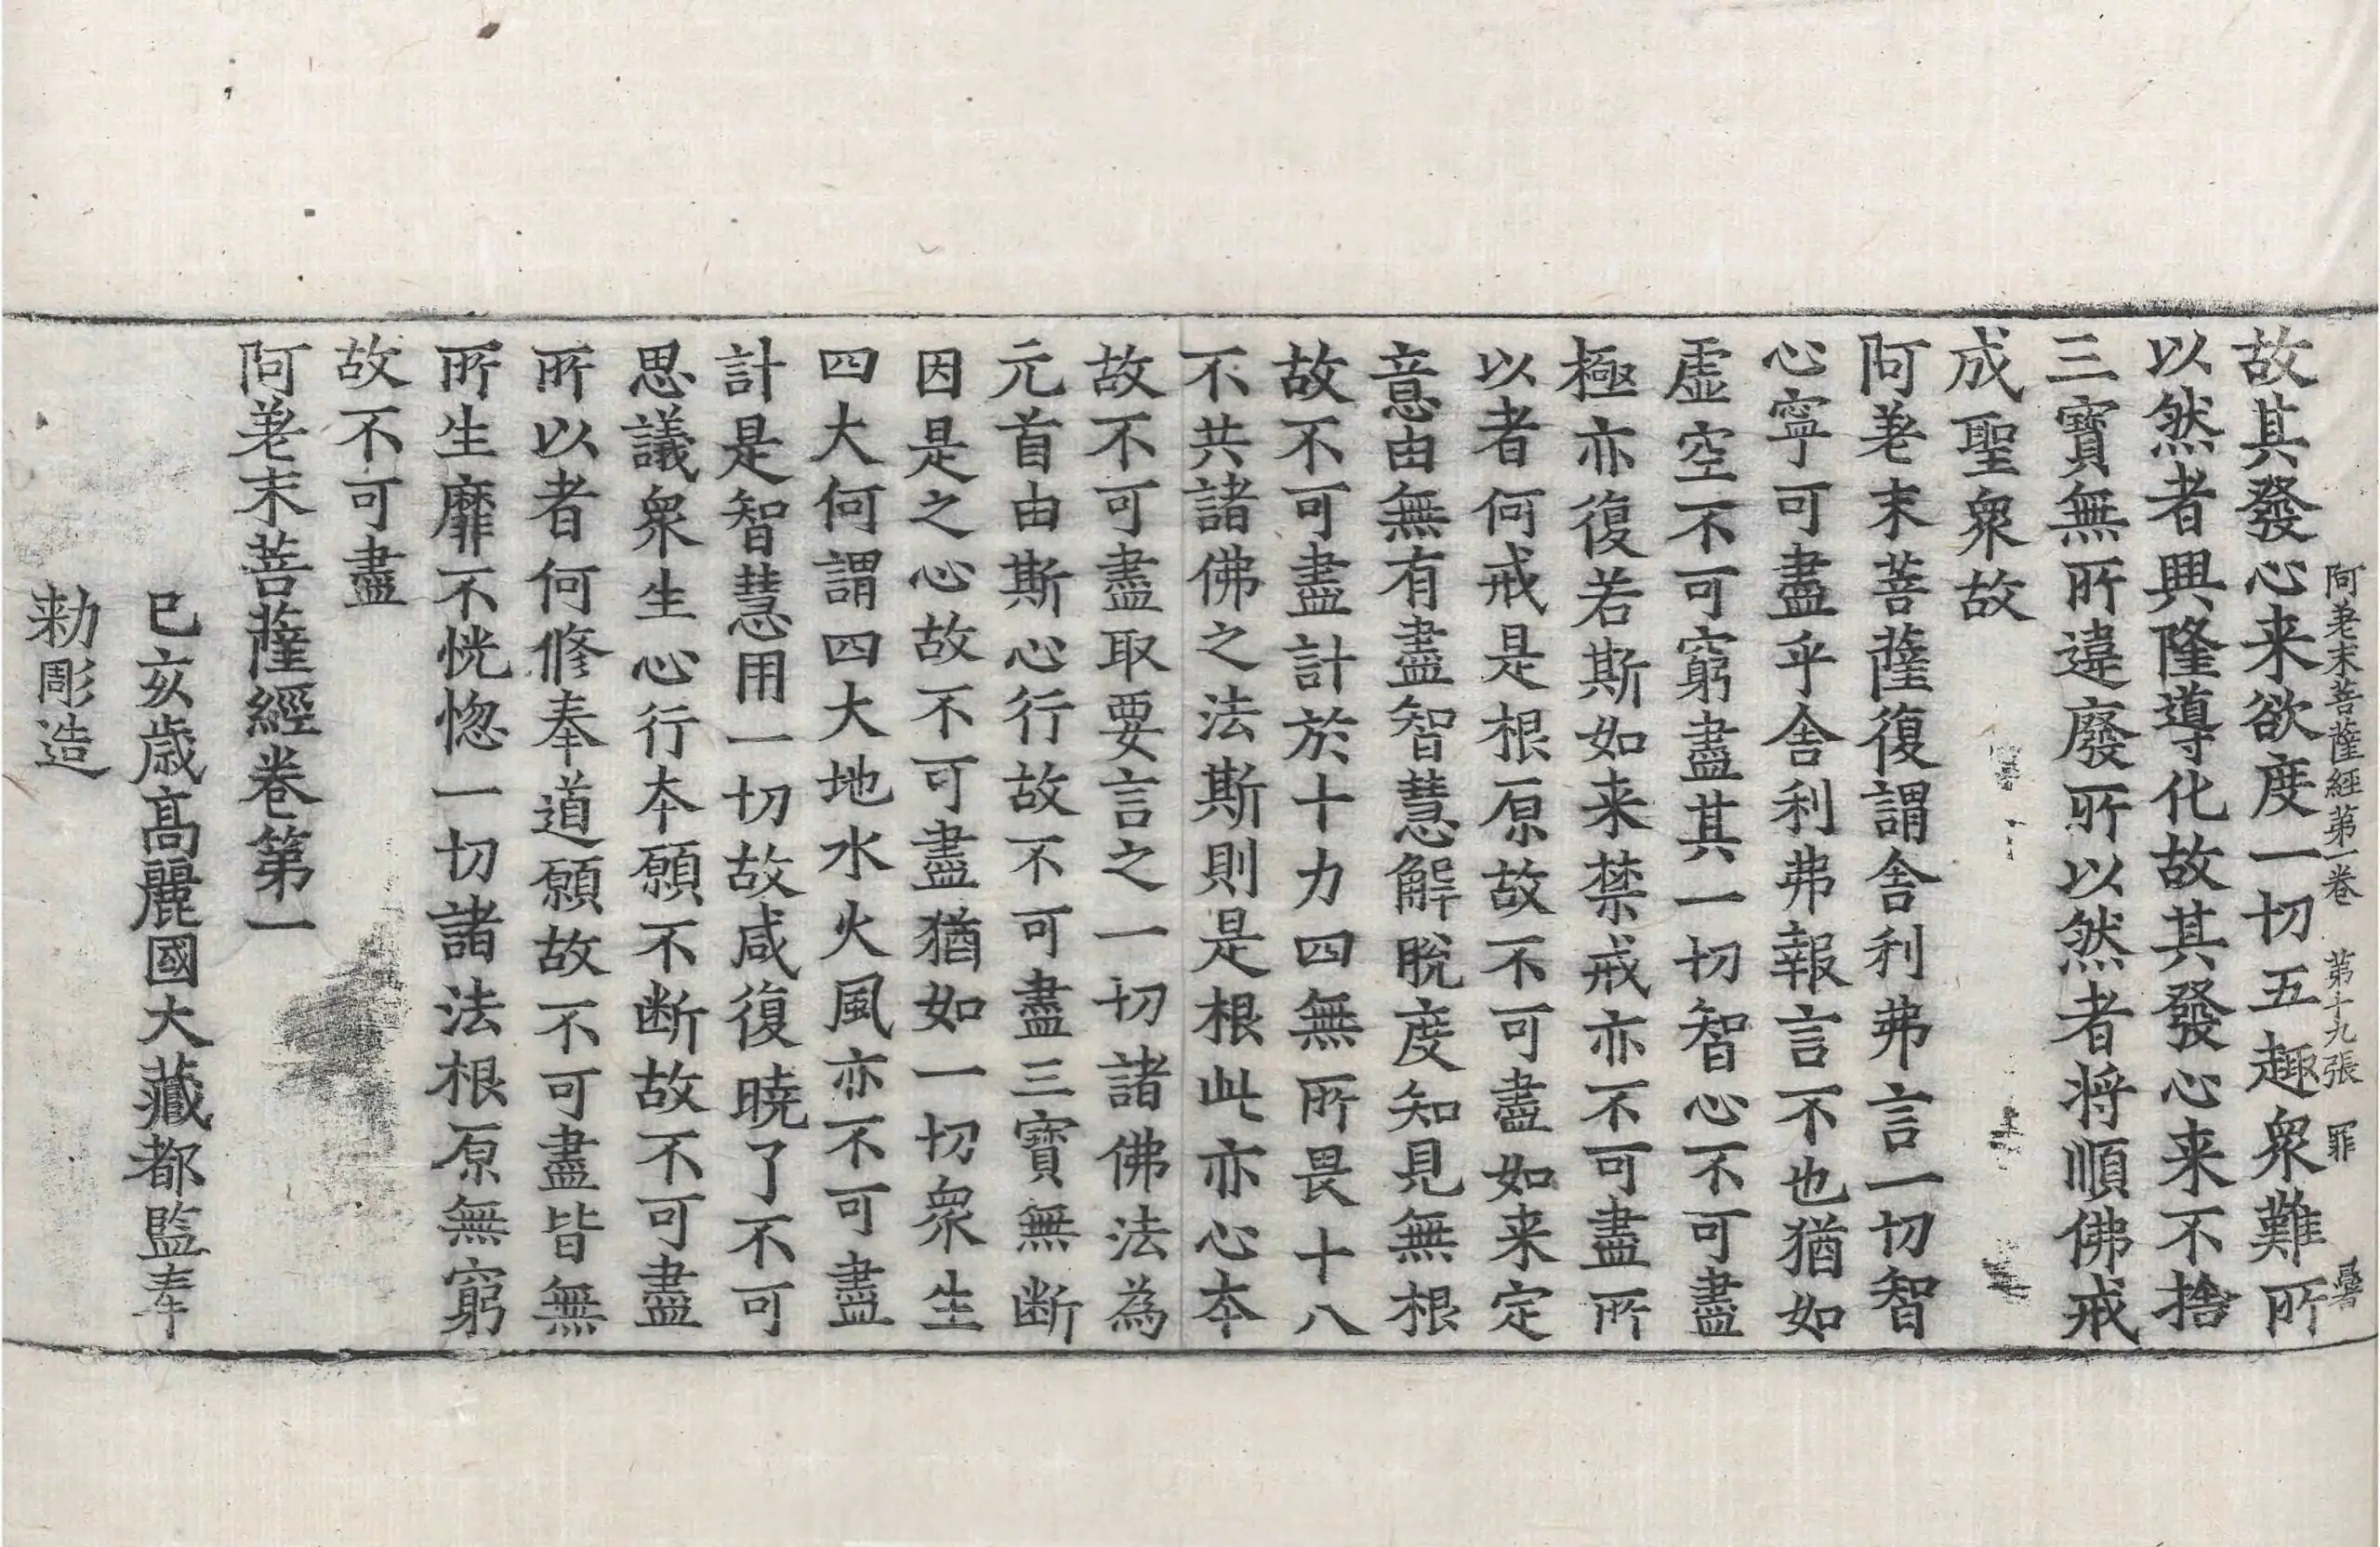 阿差末菩薩經第一卷　第十九張　罪
故其發心来欲度一切五趣衆難所
以然者興隆導化故其發心来不捨
三寶無所違廢所以然者将順佛戒
成聖衆故
阿差末菩薩復謂舍利弗言一切智
心寧可盡乎舍利弗報言不也猶如
虚空不可窮盡其一切智心不可盡
極亦復若斯如来禁戒亦不可盡所
以者何戒是根原故不可盡如来定
意由無有盡智慧解脫度知見無根
故不可盡計於十力四無所畏十八
不共諸佛之法斯則是根此亦心夲
故不可盡取要言之一切諸佛法為
元首由斯心行故不可盡三寶無断
因是之心故不可盡猶如一切衆生
四大何謂四大地水火風亦不可盡
計是智慧用一切故咸復曉了不可
思議衆生心行夲願不断故不可盡
所以者何修奉道願故不可盡皆無
所生靡不恍惚一切諸法根原無窮
故不可盡
阿差末菩薩經卷第一
己亥歲高麗國大藏都監奉
勑彫造